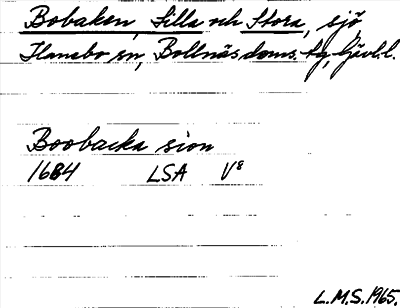 Bobaken, Lilla och Stora, sjö
Hanebo sn, Bollnäs doms. tg, Gävl.l.
Boobacka siön
1684 LSA V8
L.M.S. 1965.